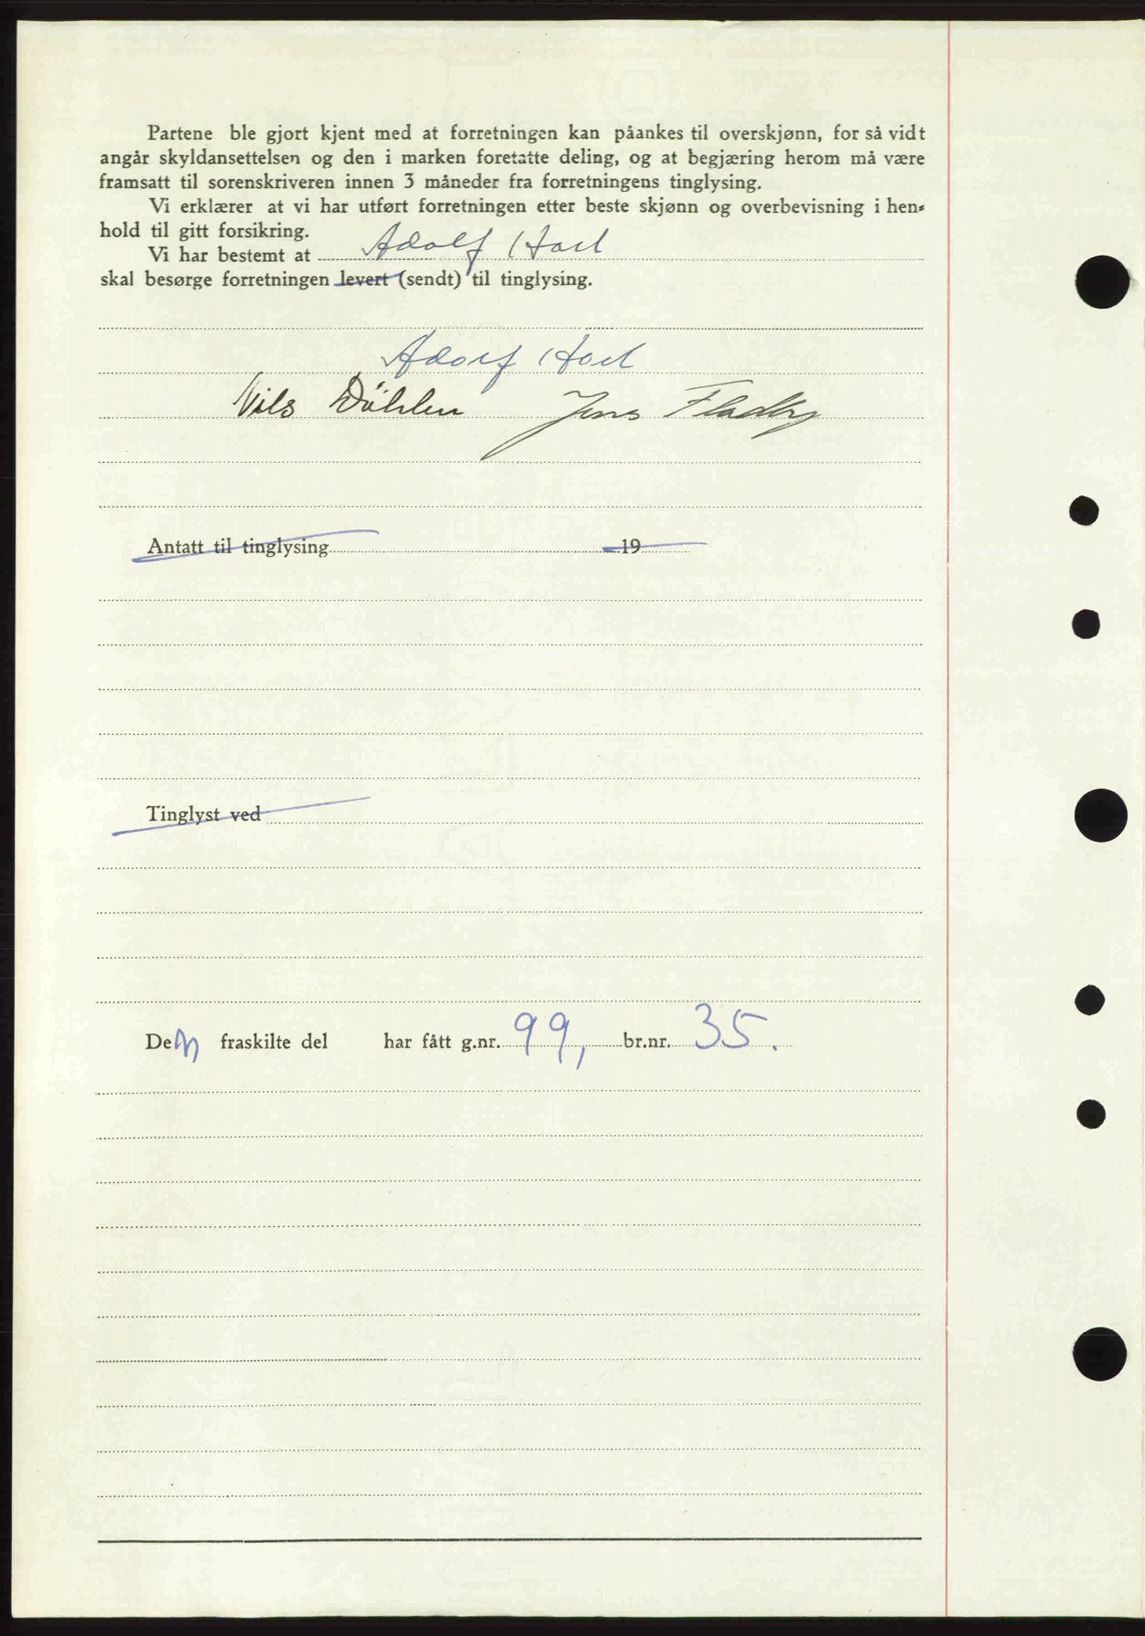 Partene ble gjort kjent med at forretningen kan påankes til overskjønn, for så vidt
angår skyldansettelsen og den i marken foretatte deling, og at begjæring herom må være
framsatt til sorenskriveren innen 3 måneder fra forretningens tinglysing.
Vi erklærer at vi har utført forretningen etter beste skjønn og overbevisning i hen-
hold til gitt forsikring.
Vi har bestemt at Adolf Hoel
skal besørge forretningen levert (sendt) til tinglysing.
Adolf Hoel
Nils Döhlen Jens Fladby
Antatt til tinglysing 19
Tinglyst ved
Den fraskilte del har fått g.nr. 99, br.nr. 35.